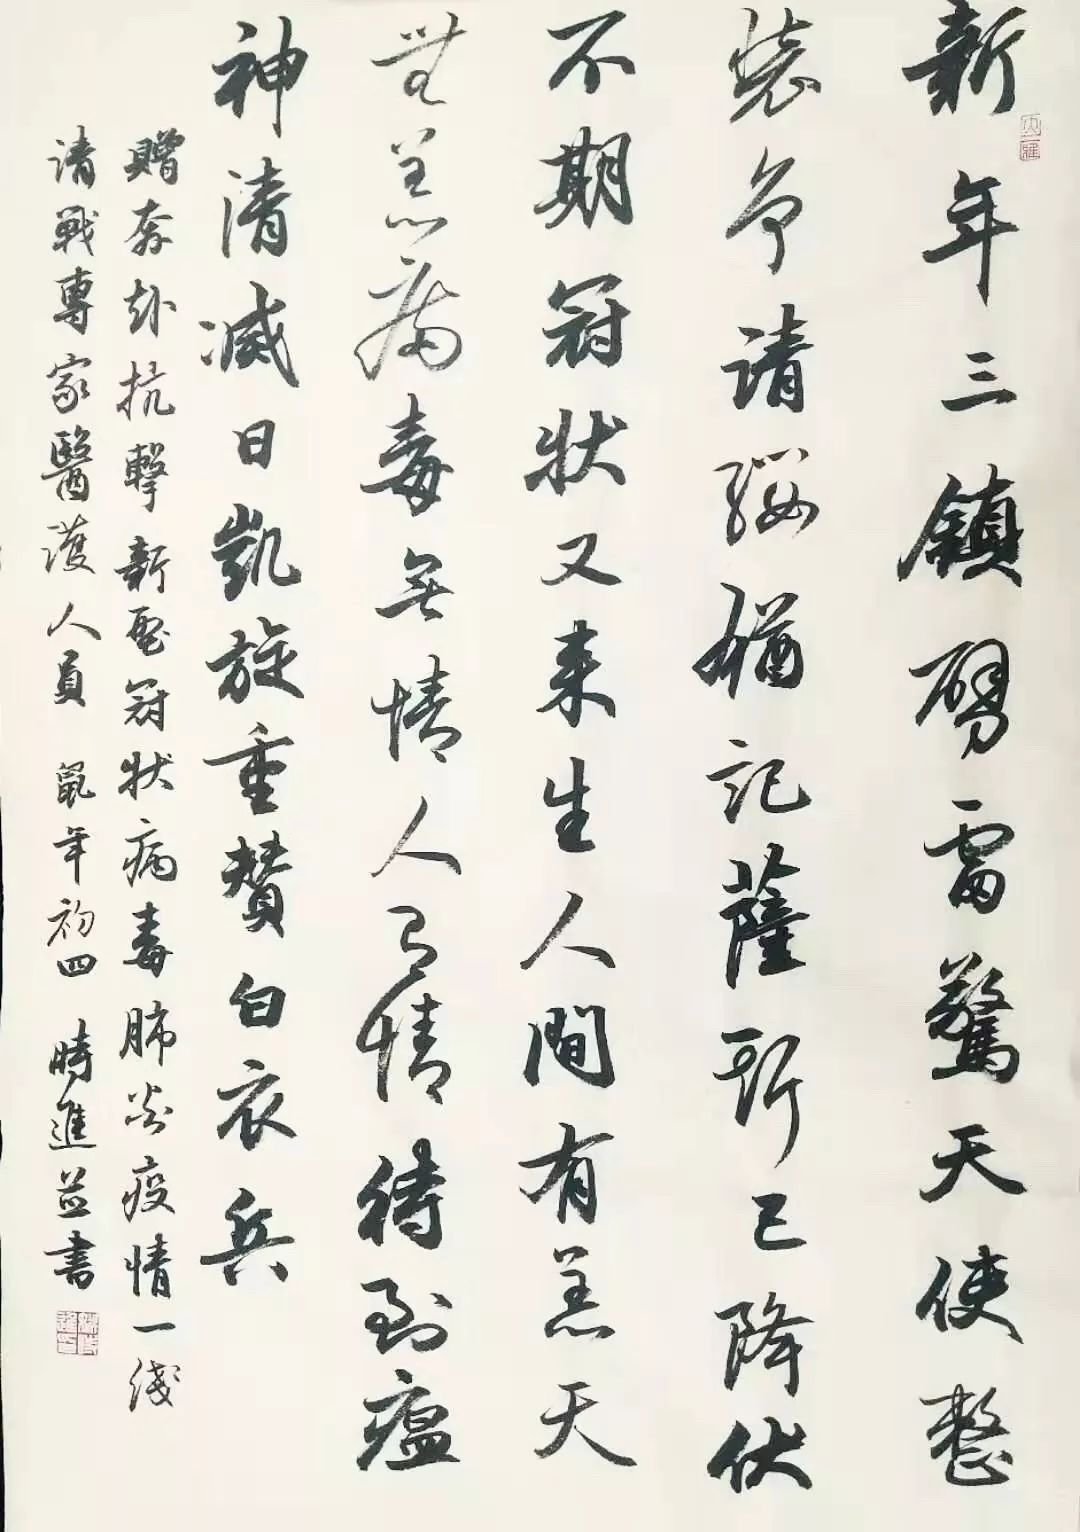 新年三鎮礕雷驚天使整
裝争请缨猶記薩斯已降伏
不期冠狀又来生人間有恙天
無恙病毒無情人有情待到瘟
神清滅日凯旋重贊白衣兵
贈奔赴抗擊新型冠狀病毒肺炎疫情一线
请戰專家醫護人員 鼠年初四 時進並書